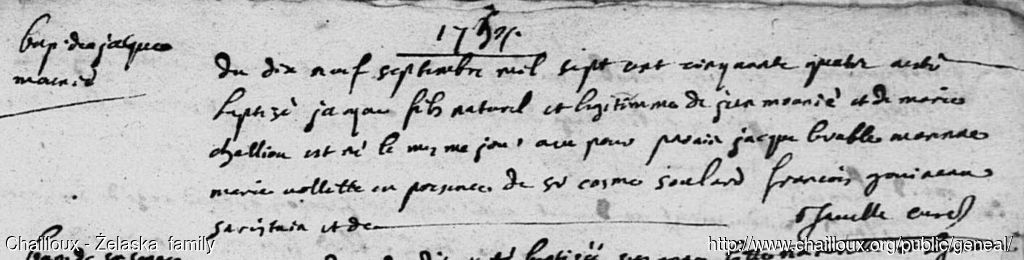 1754.
bap. de jacque
mounié
du dix neuf septembre mil sept cent cinquante quatre a esté
baptisé jacque fils naturel et legitimme de jean mounié et de marie
challiou est né le mesme jour a eu pour parain jacque bruble marenne
marie vollette en presence de sr cosme soulard francois gouineau
sacristain et de
curé
Chailloux - Żelaska family
http://www.chailloux.org/public/geneal/